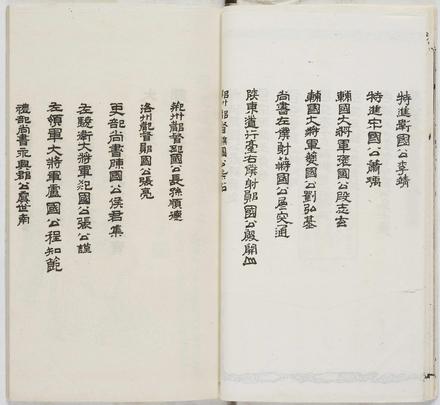 特進衛國公李靖
特進宋國公蕭瑀
輔國大將軍褒國公段志玄
輔國大將軍夔國公劉弘基
尚書左僕射蔣國公屈突通
陝東道行臺右僕射鄖國公殷開山
州都督國公
荊州都督邳國公長孫順德
洛州都督鄖國公張亮
吏部尚書陳國公侯君集
左驍衛大將軍郯國公張公謹
左領軍大將軍盧國公程知節
禮部尚書永興郡公虞世南